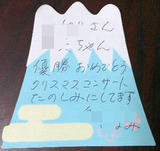 さん
ちゃん
優勝おめでとう
クリスマスコンサート
たのしみにしてます
よみ